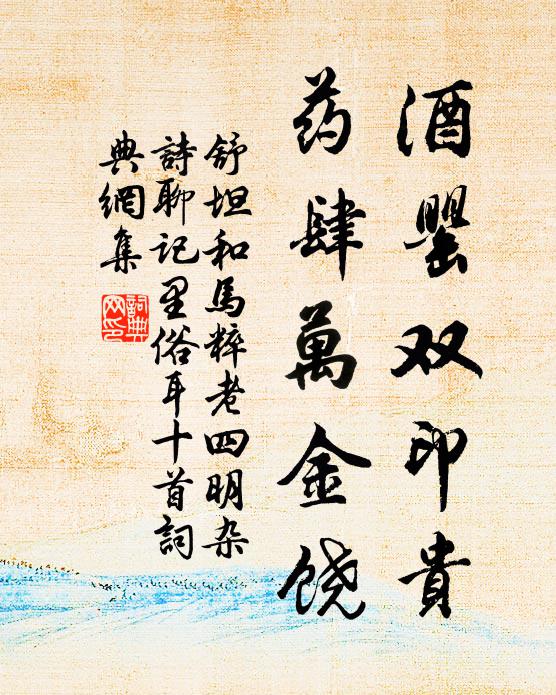 酒罂双印貴
药肆萬金饶
舒坦和馬粹老四明杂
詩聊記里俗耳十首詞
典網集
詞典
网印